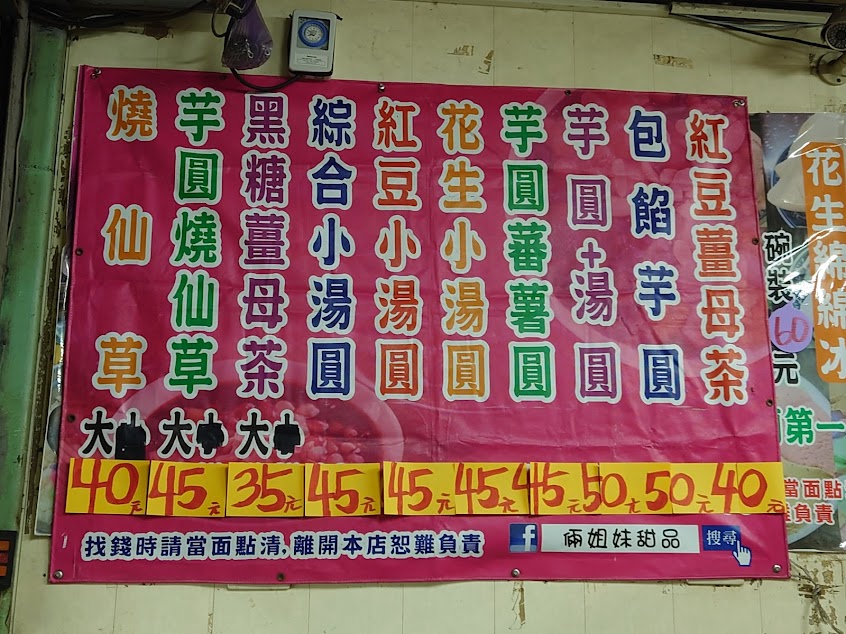 紅豆薑母茶
包餡芋圓
芋圓+湯圓
芋圓蕃薯圓
花生小湯圓
紅豆小湯圓
綜合小湯圓
黑糖薑母茶
芋圓燒仙草
燒仙草
大 大 大
40元 45元 35元 45元 45元 45元 45元 50元 50元 40元
找錢時請當面點清,離開本店恕難負責
f 倆姐妹甜品 搜尋
花生綿綿冰
碗裝60元
第一
當面點
難負責